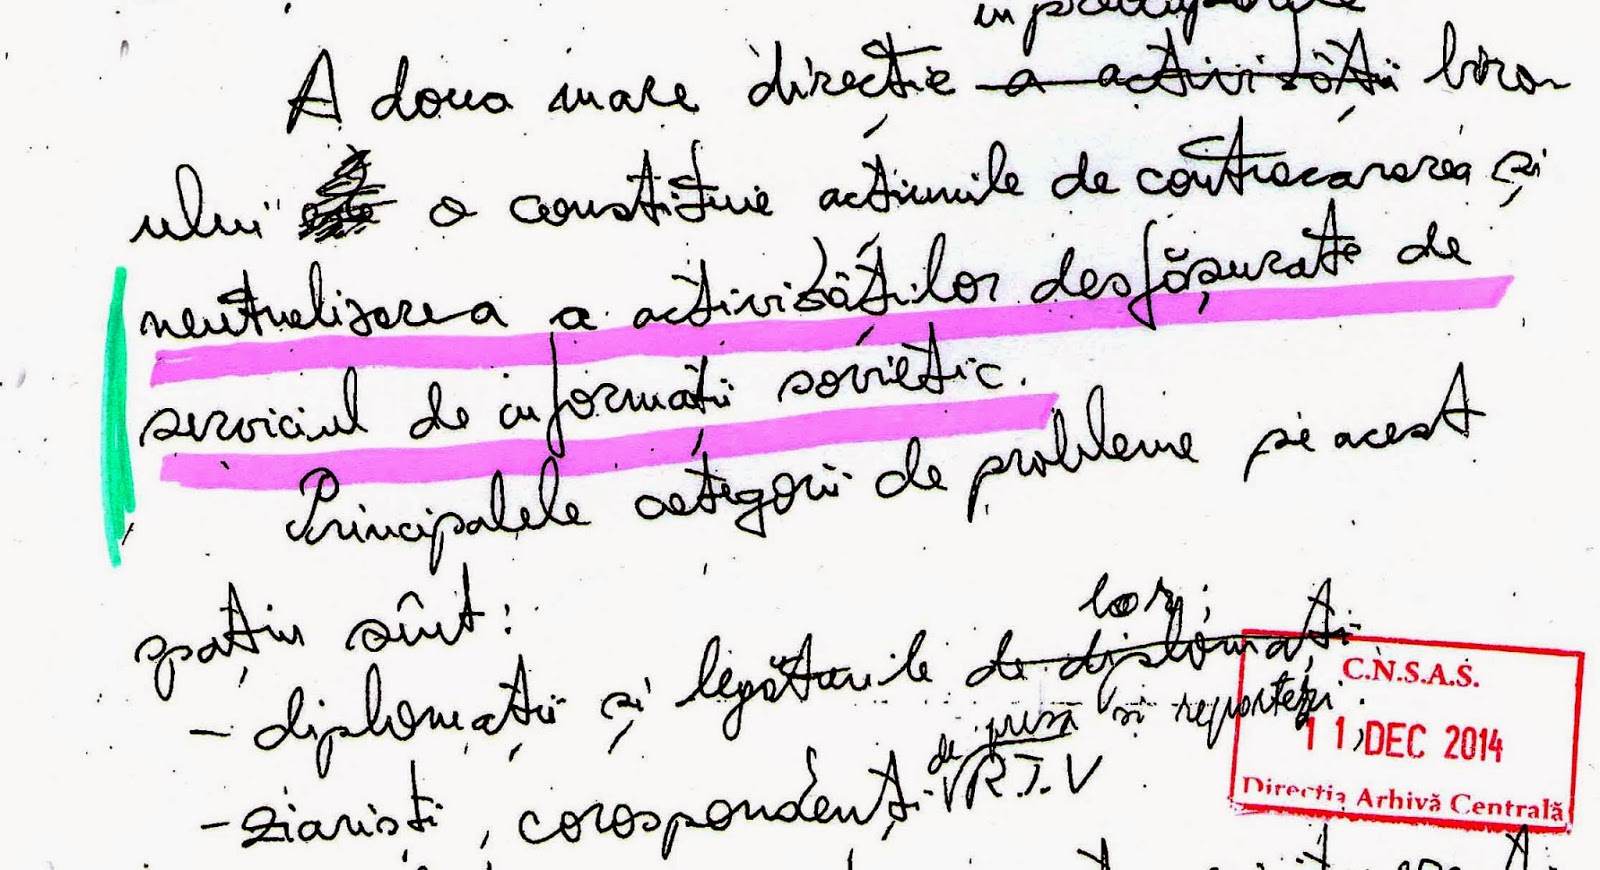 A doua mare direcție a activității biro-
ului o constituie acțiunile de contracararea și
neutralizarea a activităților desfășurate de
serviciul de informații sovietic.
Principalele categorii de probleme pe acest
spațiu sînt:
lor;
- diplomații și legăturile de diplomați
de presă și reporteri
- ziariști, corespondenți R.T.V
C.N.S.A.S.
11 DEC 2014
Direcția Arhivă Centrală